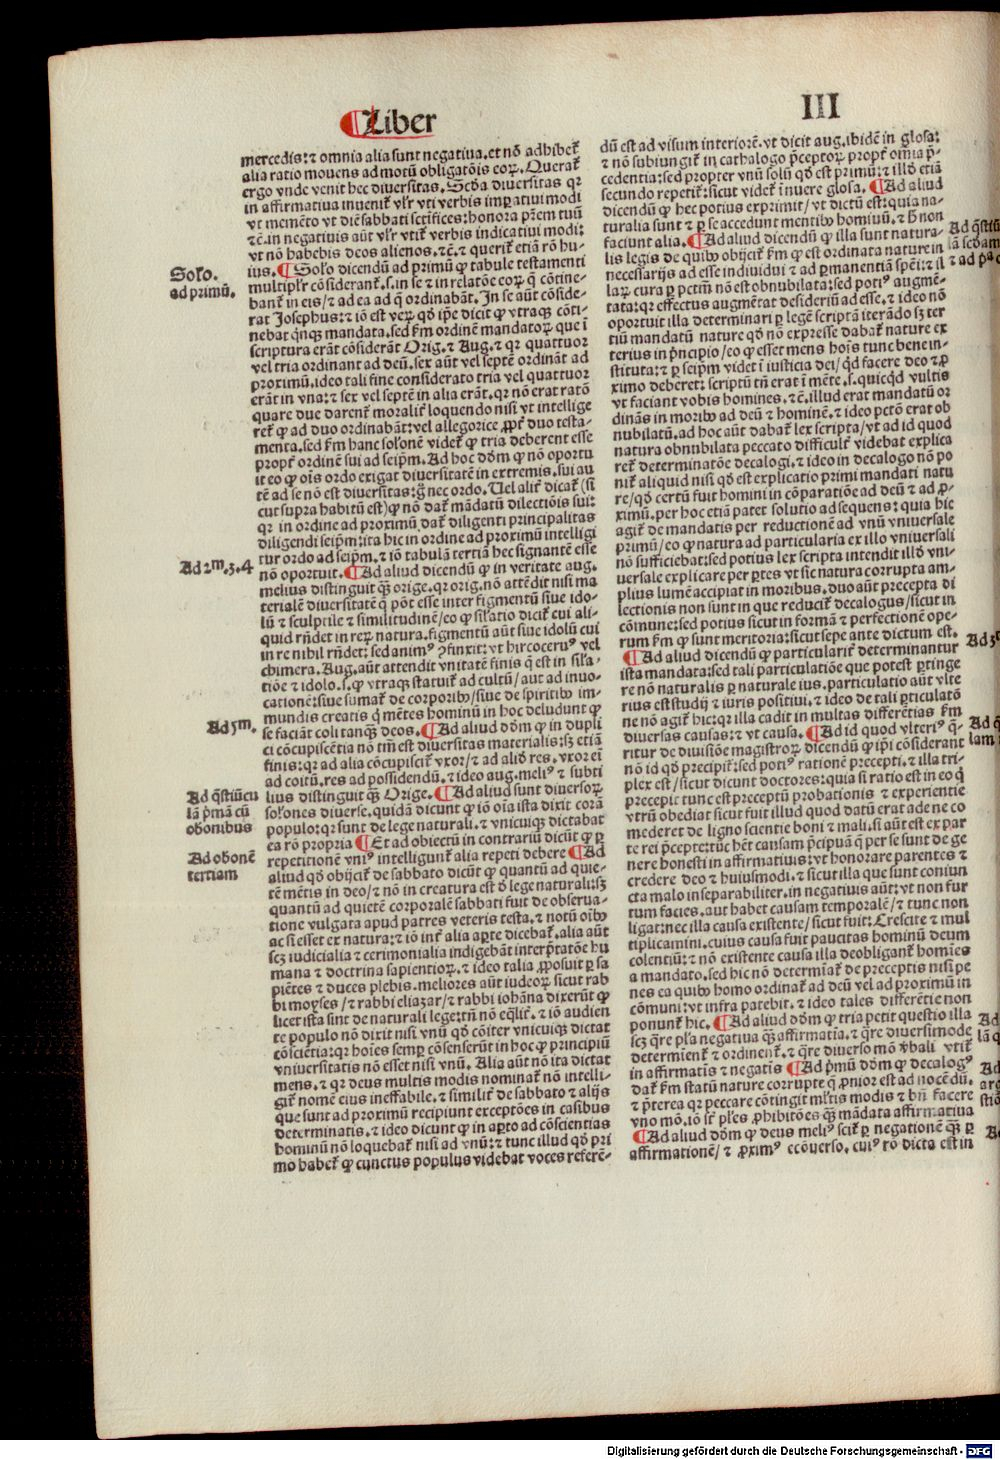 Liber
III
mercedis: ⁊ omnia alia sunt negatiua. et nō adhibet̃
alia ratio mouens ad motū obligatōis eoꝝ. Querat̃
ergo vnde venit hec diuersitas. Scd̓a diuersitas qꝛ
in affirmatiua inuenit̃ vl̓r vti verbis impatiui modi
vt memēto vt diē sabbati sctifices: honora p̄em tuū
⁊c̄. in negatiuis aūt vl̓r vtit̃ verbis indicatiui modi:
vt nō habebis deos alienos. ⁊c̄. ⁊ querit̃ etiā rō hu-
ius. ¶ Sol̓o dicendū ad primū ꝙ tabule testamenti
multipl̓r cōsiderant̃. s. in se ⁊ in relatōe eoꝝ q̄ cōtine-
bant̃ in eis/ ⁊ ad ea ad q̄ ordinabāt. In se aūt cōside-
rat Josephus: ⁊ iō est veꝝ qd̓ ip̄e dicit ꝙ vtraqꝫ cōti-
nebat qnqꝫ mandata. sed s̄m ordinē mandatoꝝ que ī
scriptura erāt cōsiderāt Orig. ⁊ Aug. ⁊ qꝛ quattuor
vel tria ordinant ad deū. sex aūt vel septē ordināt ad
proximū. ideo tali fine considerato tria vel quattuor
erāt in vna: ⁊ sex vel septē in alia erāt. qꝛ nō erat ratō
quare due darent̃ moralit̓ loquendo nisi vt intellige
ret̃ ꝙ ad duo ordinabāt: vel allegorice ꝓpt̓ duo testa-
menta. sed s̄m hanc sol̓onē videt̃ ꝙ tria deberent esse
propt̓ ordinē sui ad seip̄m. Ad hoc dōm ꝙ nō oportu
it eo ꝙ oīs ordo exigat diuersitatē in extremis. sui au
tē ad se nō est diuersitas: g̊ nec ordo. Uel alit̓ dicat̃ (si
cut supra habitū est) ꝙ nō dat̃ mādatū dilectiōis sui:
qꝛ in ordine ad proximū dat̃ diligenti principalitas
diligendi seip̄m: ita hic in ordine ad proximū intelligi
tur ordo ad seip̄m. ⁊ iō tabulā tertiam hec signantē esse
nō oportuit. ¶ Ad aliud dicendū ꝙ in veritate aug.
melius distinguit qꝫ orige. qꝛ orig. nō attēdit nisi ma
terialē diuersitatē q̄ pōt esse inter figmentū siue ido-
lū ⁊ sculptile ⁊ similitudinē/ eo ꝙ sil̓atio dicit̃ cui ali-
quid rn̄det in reꝝ natura. figmentū aūt siue idolū cui
in re nihil rn̄det: sed animꝰ ꝯfinxit: vt hircoceruꝰ vel
chimera. Aug. aūt attendit vnitatē finis q̄ est in sil̓a-
tiōe ⁊ idolo. s. ꝙ vtraqꝫ statuit̃ ad cultū/ aut ad inuo-
cationē: siue sumat̃ de corporibꝰ/ siue de spiritibꝰ im-
mundis creatis q̄ mētes hominū in hoc deludunt ꝙ
se faciāt coli tanqꝫ deos. ¶ Ad aliud dōm ꝙ in dupli
ci cōcupiscētia nō tm̄ est diuersitas materialis: sꝫ etiā
finis: qꝛ ad alia cōcupiscit̃ vxor/ ⁊ ad aliō res. vxor eī
ad coitū. res ad possidendū. ⁊ ideo aug. meliꝰ ⁊ subti
lius distinguit qꝫ Orige. ¶ Ad aliud sunt diuersoꝝ
sol̓ones diuerse. quidā dicunt ꝙ iō oīa ista dixit corā
populo: qꝛ sunt de lege naturali. ⁊ vnicuiqꝫ dictabat
ea rō propria ¶ Et ad obiectū in contrariū dicūt ꝙ p̱
repetitionē vniꝰ intelligunt̃ alia repeti debere ¶ Ad
aliud qd̓ obijcit̃ de sabbato dicūt ꝙ quantū ad quie-
tē mētis in deo/ ⁊ nō in creatura est d̓ lege naturali: sꝫ
quantū ad quietē corporalē sabbati fuit de obserua-
tione vulgata apud patres veteris testa. ⁊ notū oībꝰ
ac si esset ex natura: ⁊ iō int̓ alia ap̱te dicebat̃. alia aūt
scꝫ iudicialia ⁊ cerimonialia indigebāt interp̄tatōe hu
mana ⁊ doctrina sapientioꝝ. ⁊ ideo talia ꝓposuit p̱ sa
piētes ⁊ duces plebis. meliores aūt iudeoꝝ sicut rab
bi moyses/ ⁊ rabbi eliazar/ ⁊ rabbi iohāna dixerūt ꝙ
licet ista sint de naturali lege: tn̄ nō eq̄lit̓. ⁊ iō audien
te populo nō dixit nisi vnū qd̓ cōiter vnicuiqꝫ dictat
cōsciētia: qꝛ hoīes semp̱ cōsenserūt in hoc ꝙ principiū
vniuersitatis nō esset nisi vnū. Alia aūt nō ita dictat
mens. ⁊ qꝛ deus multis modis nominat̃ nō intelli-
git̃ nomē eius ineffabile. ⁊ similit̓ de sabbato ⁊ alijs
que sunt ad proximū recipiunt exceptōes in casibus
determinatis. ⁊ ideo dicunt ꝙ in ap̱to ad cōscientias
hominū nō loquebat̃ nisi ad vnū: ⁊ tunc illud qd̓ pri
mo habet̃ ꝙ cunctus populus videbat voces referē-
Sol̓o.
ad primū.
Ad 2m. 3. 4
Ad 5m.
Ad q̄stiūcu
lā p̄mā cū
obonibus
Ad obonē
tertiam
dū est ad visum interiorē. vt dicit aug. ibidē in glosa:
⁊ nō subiungit̃ in cathalogo p̄ceptoꝝ propt̓ oīnia p̄-
cedentia: sed propter vnū solū qd̓ est primū: ⁊ illō etiā
secundo repetit̃: sicut videt̃ īnuere glosa. ¶ Ad aliud
dicendū ꝙ hec potius exprimit/ vt dictū est: quia na-
turalia sunt ⁊ p̱ se accedunt mentibꝰ hominū. ⁊ h̄ non
faciunt alia. ¶ Ad aliud dicendū ꝙ illa sunt natura-
lis legis de quibꝰ obijcit̃ s̄m ꝙ est ordinata nature in
necessarijs ad esse indiuidui ⁊ ad p̱manentiā sp̄ei: ⁊ il
laꝝ cura p̱ petm̄ nō est obnubilata: sed potiꝰ augmē-
tata: qꝛ effectus augmētat desideriū ad esse. ⁊ ideo nō
oportuit illa determinari p̱ legē scriptā iterādo sꝫ ter
tiū mandatū nature qd̓ nō expresse dabat̃ nature ex
terius in p̄ncipio/ eo ꝙ esset mens hoīs tunc bene in-
stituta: ⁊ p̱ seip̄m videt ī iusticia dei/ qd̓ facere deo ⁊ ꝓ
ximo deberet: scriptū tn̄ erat ī mēte. s. quicqd̓ vultis
vt faciant vobis homines. ⁊c̄. illud erat mandatū or
dināns in moribꝰ ad deū ⁊ hominē. ⁊ ideo petō erat ob
nubilatū. ad hoc aūt dabat̃ lex scripta/ vt ad id quod
natura obnubilata peccato difficult̓ videbat explica
ret̃ determinatōe decalogi. ⁊ ideo in decalogo nō po
nit̃ aliquid nisi qd̓ est explicatio primi mandati natu
re/ qd̓ certū fuit homini in cōparatiōe ad deū ⁊ ad ꝓ-
ximū. per hoc etiā patet solutio ad sequens: quia hic
agit̃ de mandatis per reductionē ad vnū vniuersale
primū/ eo ꝙ natura ad particularia ex illo vniuersali
nō sufficiebat: sed potius lex scripta intendit illō vni-
uersale explicare per p̱tes vt sic natura corrupta am-
plius lumē accipiat in moribus. duo aūt precepta di
lectionis non sunt in que reducit̃ decalogus/ sicut in
cōmune: sed potius sicut in formā ⁊ perfectionē ope-
rum s̄m ꝙ sunt meritoria: sicut sepe ante dictum est.
¶ Ad aliud dicendū ꝙ particularit̓ determinantur
ista mandata: sed tali particulatiōe que potest p̱tinge
re nō naturalis p̱ naturale ius. particulatio aūt vlte
rius est studij ⁊ iuris positiui. ⁊ ideo de tali p̱ticulatō
ne nō agit̃ hic: qꝛ illa cadit in multas differētias s̄m
diuersas causas: ⁊ vt causa. ¶ Ad id quod vlteriꝰ q̄-
ritur de diuisiōe magistroꝝ dicendū ꝙ ip̄i cōsiderant
nō id qd̓ precipit̃: sed potiꝰ rationē precepti. ⁊ illa tri-
plex est/ sicut dicunt doctores: quia si ratio est in eo q̄
precepit tunc est preceptū probationis ⁊ experientie
vtrū obediat sicut fuit illud quod datū erat ade ne co
mederet de ligno scientie boni ⁊ mali. si aūt est ex par
te rei p̄cepte: tūc hēt causam p̄cipuā q̄ per se sunt de ge
nere honesti in affirmatiuis: vt honorare parentes ⁊
credere deo ⁊ huiusmodi. ⁊ sicut illa que sunt coniun
cta malo inseparabiliter. in negatiuis aūt: vt non fur
tum facies. aut habet causam temporalē/ ⁊ tunc non
ligat: nec illa causa existente/ sicut fuit: Crescite ⁊ mul
tiplicamini. cuius causa fuit paucitas hominū deum
colentiū: ⁊ nō existente causa illa deobligant̃ homīes
a mandato. sed hic nō determīat̃ de preceptis nisi pe
nes ea quibꝰ homo ordinat̃ ad deū vel ad proximū in
cōmuni: vt infra patebit. ⁊ ideo tales differētie non
ponunt̃ hic. ¶ Ad aliud dōm ꝙ tria petit questio illa
scꝫ q̄re pl̓a negatiua qꝫ affirmatia. ⁊ q̄re diuersimode
determient̃ ⁊ ordinent̃. ⁊ q̄re diuerso mō v̓bali vtit̃
in affirmatis ⁊ negatis ¶ Ad p̄mū dōm ꝙ decalogꝰ
dat̃ s̄m statū nature corrupte q̄ ꝓnior est ad nocēdū.
⁊ p̄terea qꝛ peccare cōtingit ml̓tis modis ⁊ bn̄ facere
vno mō. iō st̄ pl̓es ꝓhibitōes qꝫ mādata affirmatiua
¶ Ad aliud dōm ꝙ deus meliꝰ scit̃ p̱ negationē qꝫ p̱
affirmationē/ ⁊ ꝓximꝰ ecōuerso. cuiꝰ rō dicta est in
Ad q̄stiū
lā scdam
⁊ ad p̄a
Ad 3m
Ad q̄
lam
Ad
lā q
Ad
arg
stiō
Digitalisierung gefördert durch die Deutsche Forschungsgemeinschaft - DFG